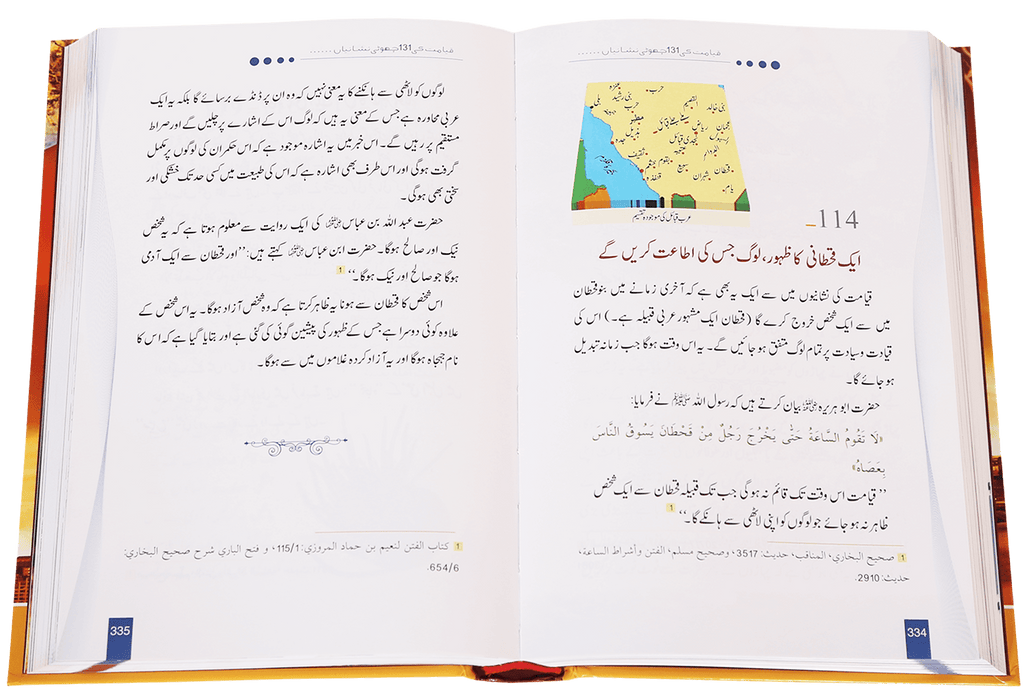 قیامت کی 131 چھوٹی نشانیاں ......
حرب
عنزہ
بنی رشید
بنی خالد
القصیم
حرب
بلی
مطیر
عجمان
ریاض
جدہ
ثقیف
سبیع
قحطان
شہران
قنفذہ
یام
عرب قبائل کی موجودہ تقسیم
114_
ایک قحطانی کا ظہور، لوگ جس کی اطاعت کریں گے
قیامت کی نشانیوں میں سے ایک یہ بھی ہے کہ آخری زمانے میں بنو قحطان
میں سے ایک شخص خروج کرے گا (قحطان ایک مشہور عربی قبیلہ ہے۔) اس کی
قیادت وسیادت پر تمام لوگ متفق ہو جائیں گے۔ یہ اس وقت ہوگا جب زمانہ تبدیل
ہو جائے گا۔
حضرت ابو ہریرہ رضی اللہ عنہ بیان کرتے ہیں کہ رسول اللہ ﷺ نے فرمایا:
«لَا تَقُومُ السَّاعَةُ حَتَّى يَخْرُجَ رَجُلٌ مِنْ قَحْطَانَ يَسُوقُ النَّاسَ
بِعَصَاهُ»
’’قیامت اس وقت تک قائم نہ ہوگی جب تک قبیلہ قحطان سے ایک شخص
ظاہر نہ ہو جائے جو لوگوں کو اپنی لاٹھی سے ہانکے گا۔‘‘ 1
1 صحيح البخاري، المناقب، حديث: 3517، وصحيح مسلم، الفتن وأشراط الساعة،
حديث: 2910.
334
قیامت کی 131 چھوٹی نشانیاں ......
لوگوں کو لاٹھی سے ہانکنے کا یہ معنی نہیں کہ وہ ان پر ڈنڈے برسائے گا بلکہ یہ ایک
عربی محاورہ ہے جس کے معنی یہ ہیں کہ لوگ اس کے اشارے پر چلیں گے اور صراط
مستقیم پر رہیں گے۔ اس خبر میں یہ اشارہ موجود ہے کہ اس حکمران کی لوگوں پر مکمل
گرفت ہوگی اور اس طرف بھی اشارہ ہے کہ اس کی طبیعت میں کسی حد تک خشکی اور
سختی بھی ہوگی۔
حضرت عبد اللہ بن عباس رضی اللہ عنہما کی ایک روایت سے معلوم ہوتا ہے کہ یہ شخص
نیک اور صالح ہوگا۔ حضرت ابن عباس رضی اللہ عنہما کہتے ہیں: ’’اور قحطان سے ایک آدمی
ہوگا جو صالح اور نیک ہوگا۔‘‘ 1
اس شخص کا قحطان سے ہونا یہ ظاہر کرتا ہے کہ وہ شخص آزاد ہوگا۔ یہ اس شخص کے
علاوہ کوئی دوسرا ہے جس کے ظہور کی پیشین گوئی کی گئی ہے اور بتایا گیا ہے کہ اس کا
نام جہجاہ ہوگا اور یہ آزاد کردہ غلاموں میں سے ہوگا۔
1 كتاب الفتن لنعيم بن حماد المروزي: 115/1، و فتح الباري شرح صحيح البخاري:
654/6.
335